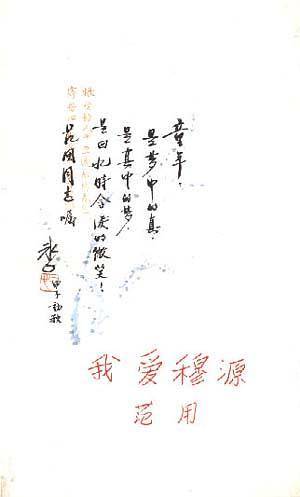 童年,
是梦中的真,
是真中的梦,
是回忆时含泪的微笑!
范用同志嘱
冰心
甲子初秋
我爱穆源
范用